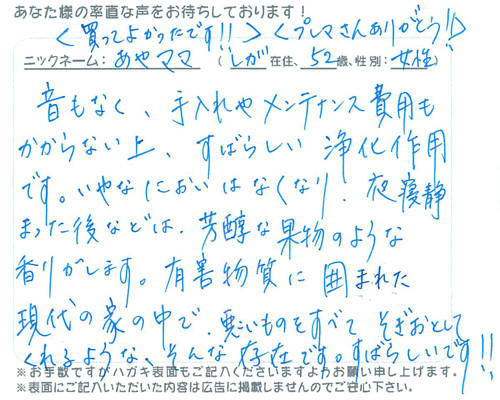 あなた様の率直な声をお待ちしております！
＜買ってよかったです!!＞＜プレマさんありがとう!!＞
ニックネーム：あやママ （しが在住、52歳、性別：女性）
音もなく、手入れやメンテナンス費用も
かからない上、すばらしい浄化作用
です。いやなにおいはなくなり、夜寝静
まった後などは、芳醇な果物のような
香りがします。有害物質に囲まれた
現代の家の中で、悪いものをすべてそぎおとして
くれるような、そんな存在です。すばらしいです!!
※お手数ですがハガキ表面もご記入くださいますようお願い申し上げます。
※表面にご記入いただいた内容は広告に掲載しませんのでご安心下さい。